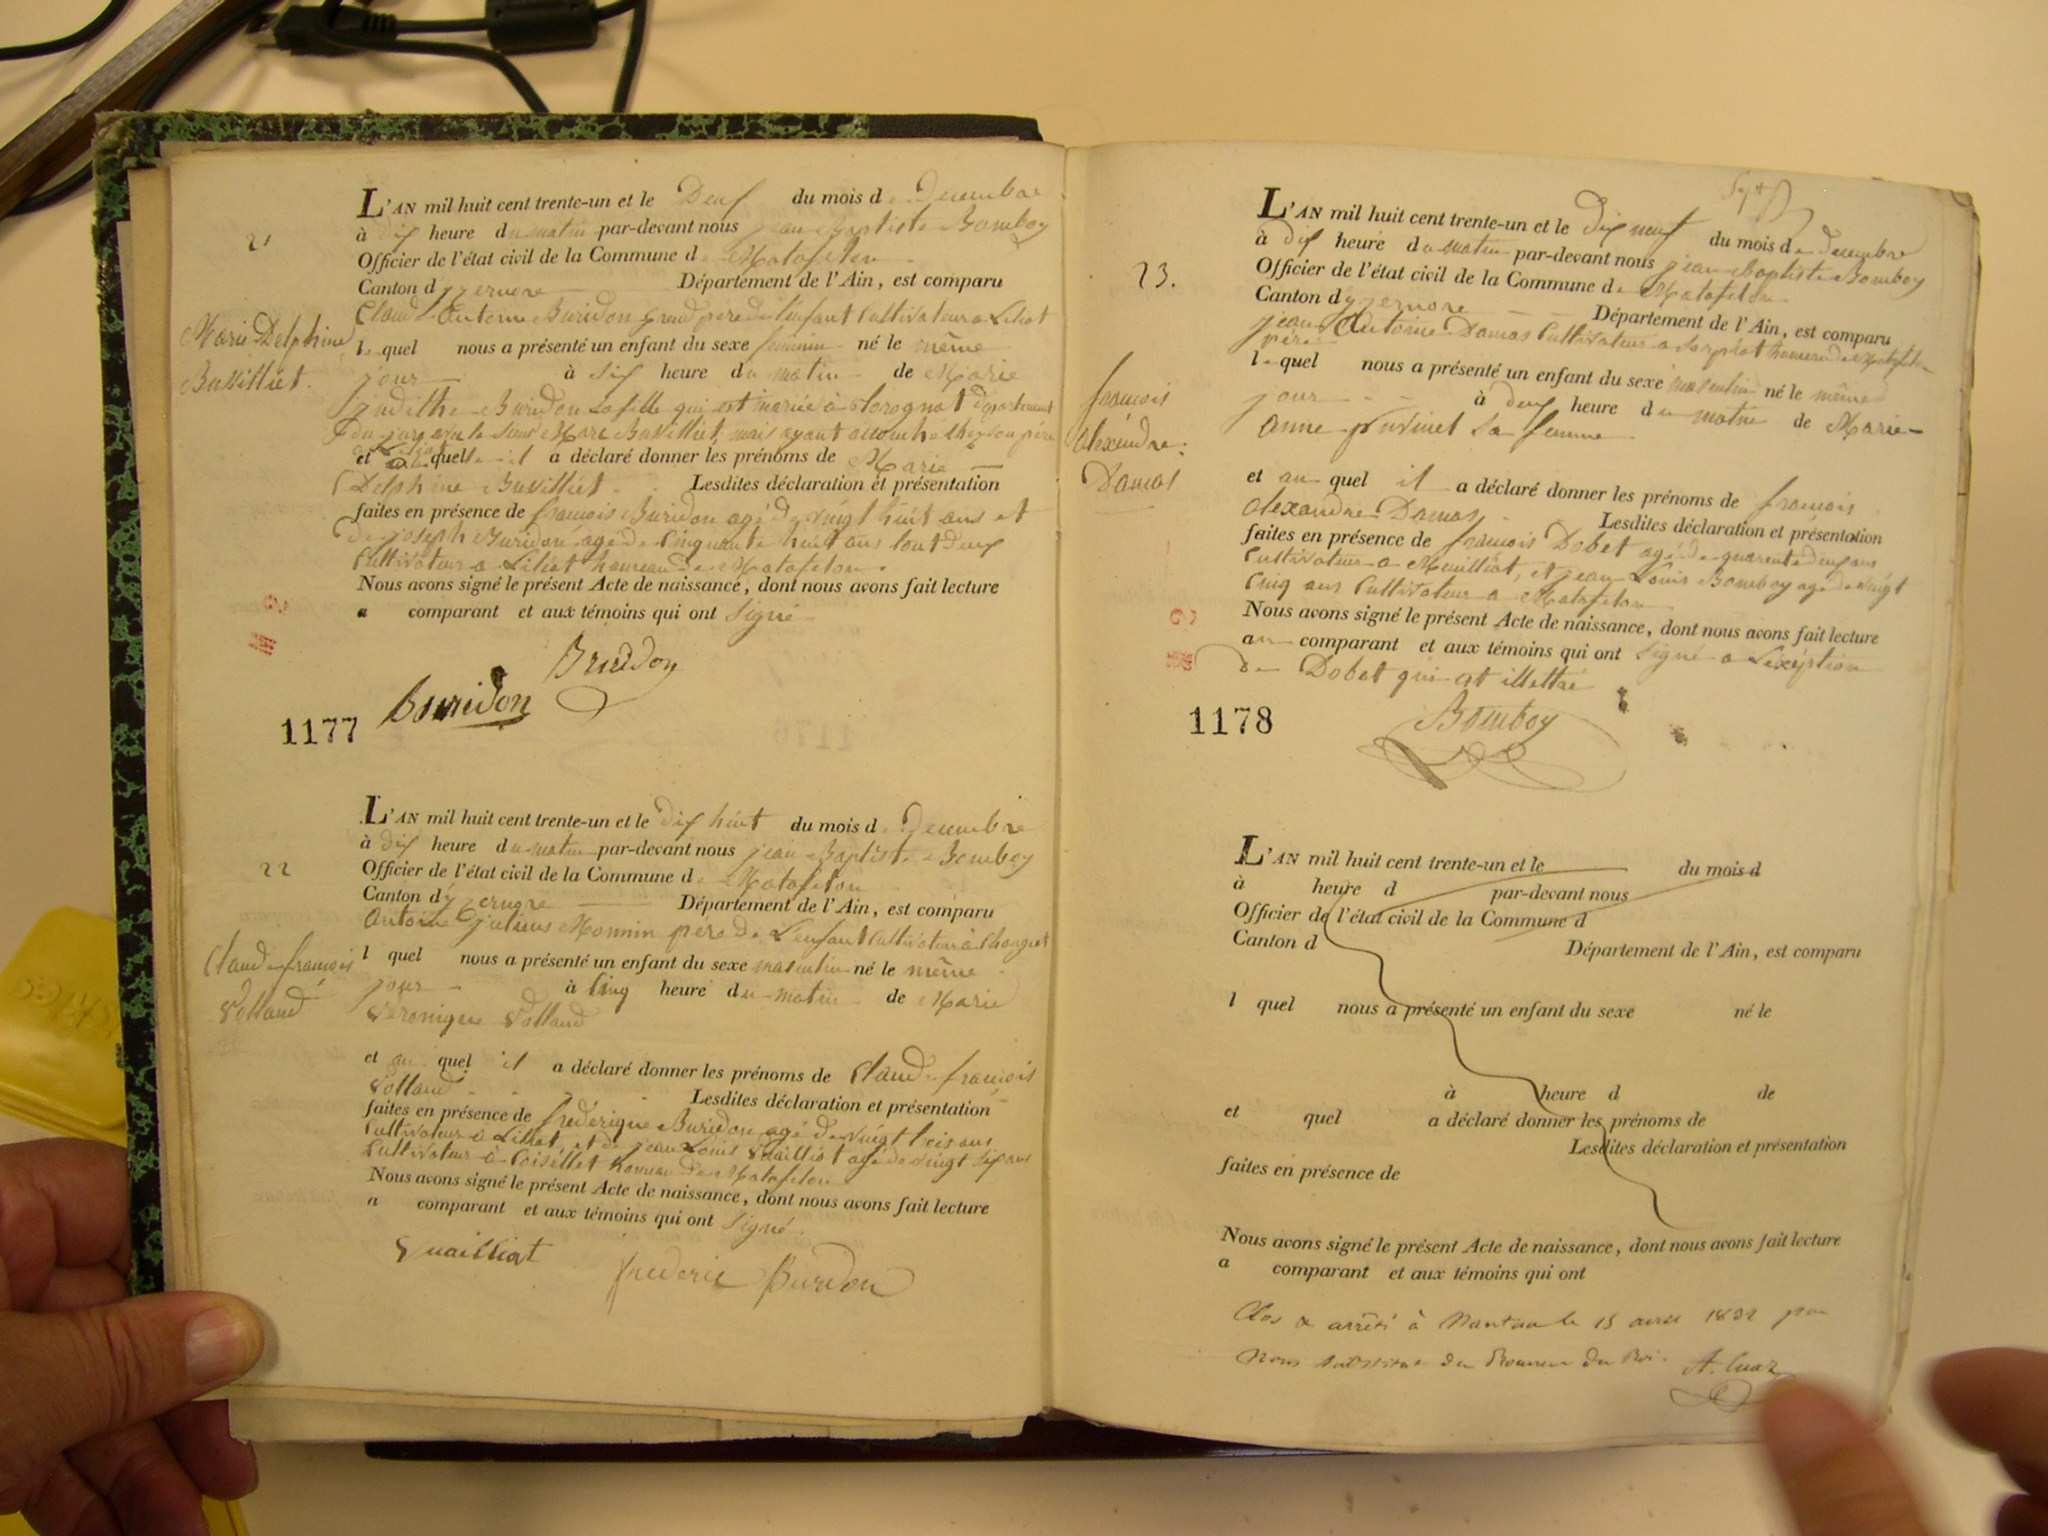 21
Marie Delphine
Buvilliet.
L'AN mil huit cent trente-un et le Deux du mois de Decembre
à dix heure du matin par-devant nous jean Baptiste Bomboy
Officier de l'état civil de la Commune de Matafelon
Canton d'yzernore Département de l'Ain, est comparu
Claude Antoine Buridon grand pere de l'enfant Cultivateur a Liliat
lequel nous a présenté un enfant du sexe feminin né le même
jour à six heure du matin de Marie
judithe Buridon Sa fille qui est mariée à departement
du jura avec le sieur Marc Buvilliet, mais ayant accouché chez son père
et a quelle il a déclaré donner les prénoms de Marie
Delphine Buvilliet. Lesdites déclaration et présentation
faites en présence de françois Buridon agé de vingt huit ans et
de joseph Buridon agé de Cinquante huit ans tout deux
Cultivateur a Liliat hameau de Matafelon.
Nous avons signé le présent Acte de naissance, dont nous avons fait lecture
a comparant et aux témoins qui ont Signé
Buridon
Bouridon
1177
22
Claude françois
Volland
L'AN mil huit cent trente-un et le dix huit du mois de Decembre
à dix heure du matin par-devant nous jean Baptiste Bomboy
Officier de l'état civil de la Commune de Matafelon
Canton d'y Département de l'Ain, est comparu
Antoine julien Monnin pere de L'enfant Cultivateur à
l quel nous a présenté un enfant du sexe masculin né le même
jour à Cinq heure du matin de Marie
Veronique Volland
et au quel il a déclaré donner les prénoms de Claude françois
Volland Lesdites déclaration et présentation
faites en présence de frédérique Buridon agé de vingt trois ans
Cultivateur à Liliat, et de jean Louis Vuailliat agé de vingt six ans
Cultivateur à Coiselet hameau de Matafelon
Nous avons signé le présent Acte de naissance, dont nous avons fait lecture
a comparant et aux témoins qui ont Signé.
Vuailliat frederic Buridon
23.
françois
alexandre
Damas
L'AN mil huit cent trente-un et le Dix neuf du mois de decembre
à dix heure du matin par-devant nous jean Baptiste Bomboy
Officier de l'état civil de la Commune de Matafelon
Canton d'yzernore Département de l'Ain, est comparu
jean Antoine Damas Cultivateur a hameau de Matafelon
père
lequel nous a présenté un enfant du sexe masculin né le même
jour à deux heure du matin de Marie
anne Sa femme
et au quel il a déclaré donner les prénoms de françois
alexandre Damas. Lesdites déclaration et présentation
faites en présence de françois Dobet agé de quarente deux ans
Cultivateur a, et jean Louis Bomboy agé de vingt
Cinq ans Cultivateur a Matafelon
Nous avons signé le présent Acte de naissance, dont nous avons fait lecture
au comparant et aux témoins qui ont Signé a Lexeption
de Dobet qui est illettré
Bomboy
1178
L'AN mil huit cent trente-un et le du mois d
à heure d par-devant nous
Officier de l'état civil de la Commune d
Canton d Département de l'Ain, est comparu
l quel nous a présenté un enfant du sexe né le
à heure d de
et quel a déclaré donner les prénoms de
Lesdites déclaration et présentation
faites en présence de
Nous avons signé le présent Acte de naissance, dont nous avons fait lecture
a comparant et aux témoins qui ont
Clos & arrêté à Nantua le 15 avril 1832 par
Nous substitut du Procureur du Roi.